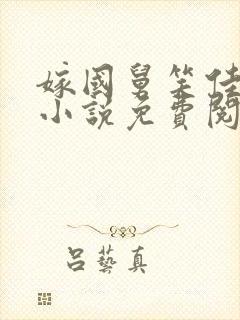 嫁國舅笑佳
小說免費閱
呂藝真